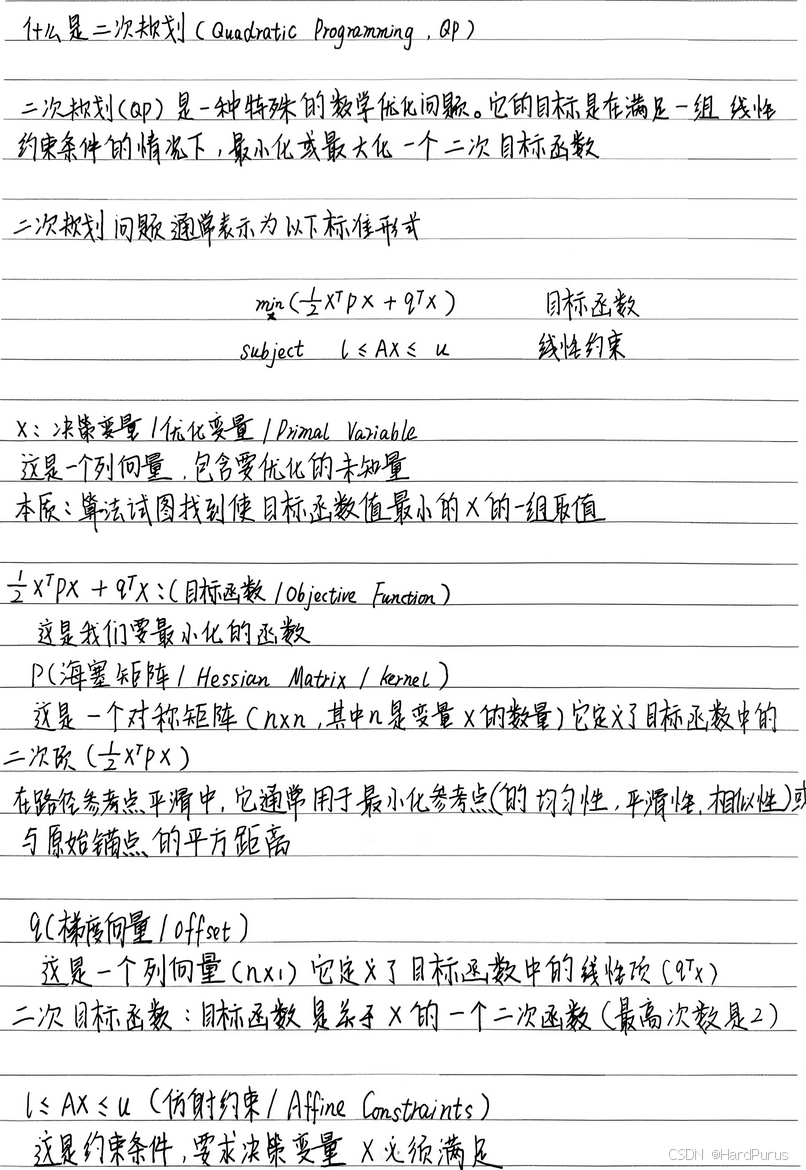 什么是二次规划(Quadratic Programming,QP)
二次规划(QP)是一种特殊的数学优化问题。它的目标是在满足一组 线性
约束条件的情况下,最小化或最大化一个二次目标函数
二次规划问题通常表示为以下标准形式
min x (1/2 xᵀPx + qᵀx) 目标函数
subject l ≤ Ax ≤ u 线性约束
x: 决策变量/优化变量/Primal Variable
这是一个列向量,包含要优化的未知量
本质:算法试图找到使目标函数值最小的x的一组取值
1/2 xᵀPx + qᵀx:(目标函数/Objective Function)
这是我们要最小化的函数
P(海塞矩阵/Hessian Matrix/kernel)
这是一个对称矩阵(n×n,其中n是变量x的数量)它定义了目标函数中的
二次项(1/2 xᵀPx)
在路径参考点平滑中,它通常用于最小化参考点(的均匀性,平滑性,相似性)或
与原始锚点的平方距离
q(梯度向量/Offset)
这是一个列向量(n×1)它定义了目标函数中的线性项(qᵀx)
二次目标函数:目标函数是关于x的一个二次函数(最高次数是2)
l ≤ Ax ≤ u (仿射约束/Affine Constraints)
这是约束条件,要求决策变量 x 必须满足
CSDN @HardPurus